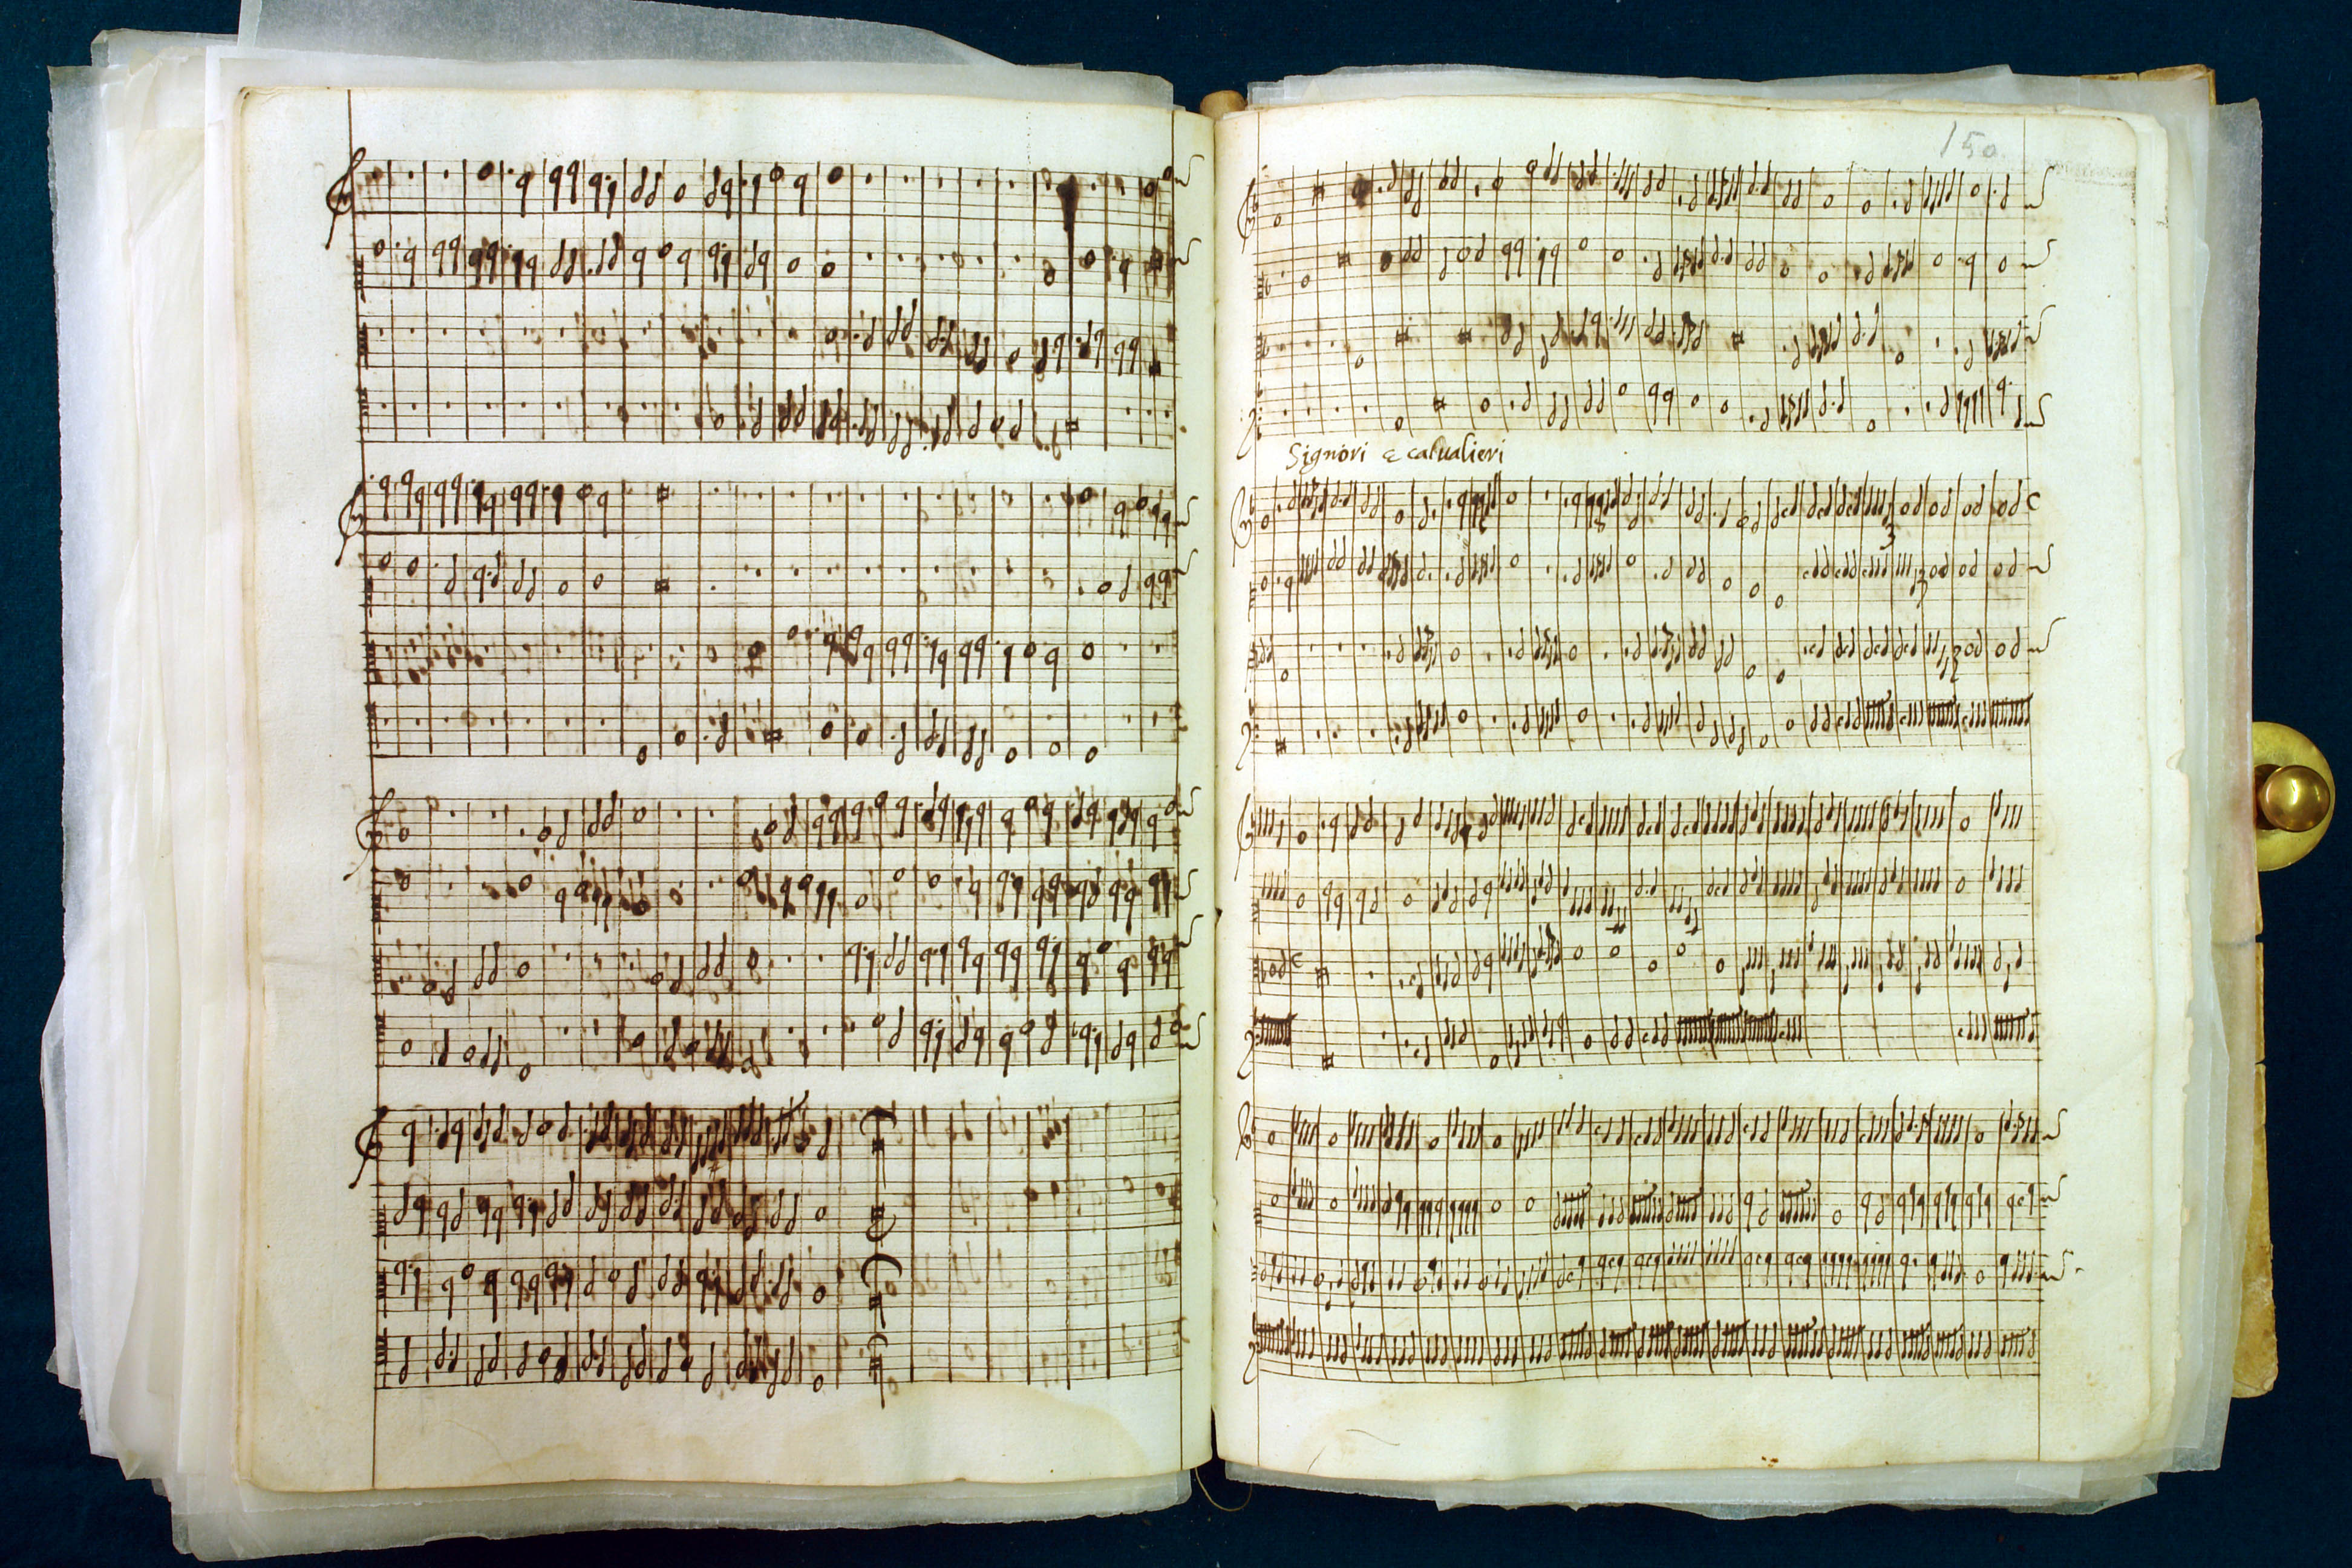 150
Signori e caualieri
3